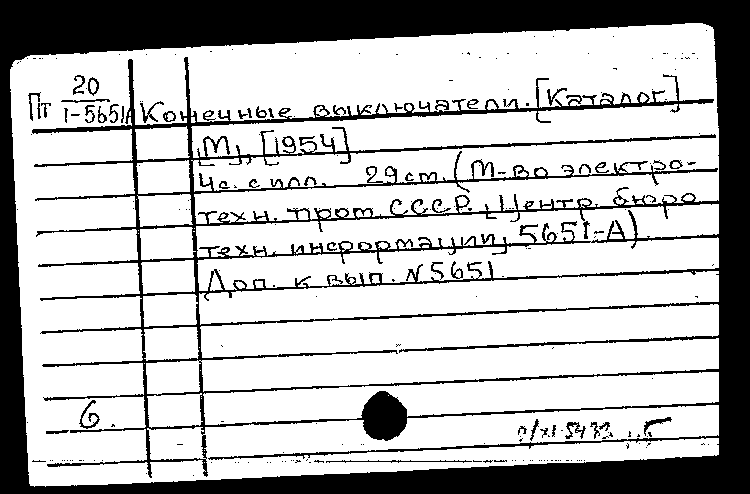 Пт 20
I-5651А Конечные выключатели. [Каталог]
[М], [1954]
4с. с илл. 29 cm. (М-во электро-
техн. пром. СССР. Центр. бюро
техн. информации, 5651-А)
Доп. к вып. N 5651
6.